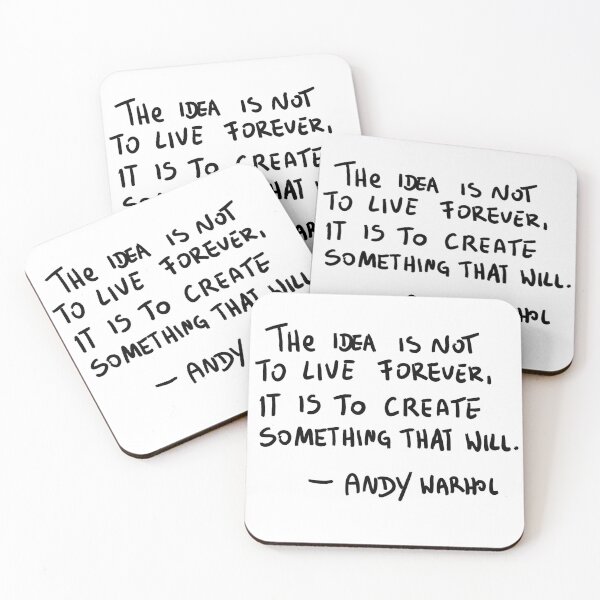 The IDEA IS NOT
TO LIVE FOREVER,
IT IS TO CREATE
The IDEA IS NOT
TO LIVE FOREVER,
IT IS TO CREATE
SOMETHING THAT WILL.
The IDEA IS NOT
TO LIVE FOREVER,
IT IS TO CREATE
SOMETHING THAT WILL
— ANDY
The IDEA IS NOT
TO LIVE FOREVER,
IT IS TO CREATE
SOMETHING THAT WILL.
— ANDY WARHOL